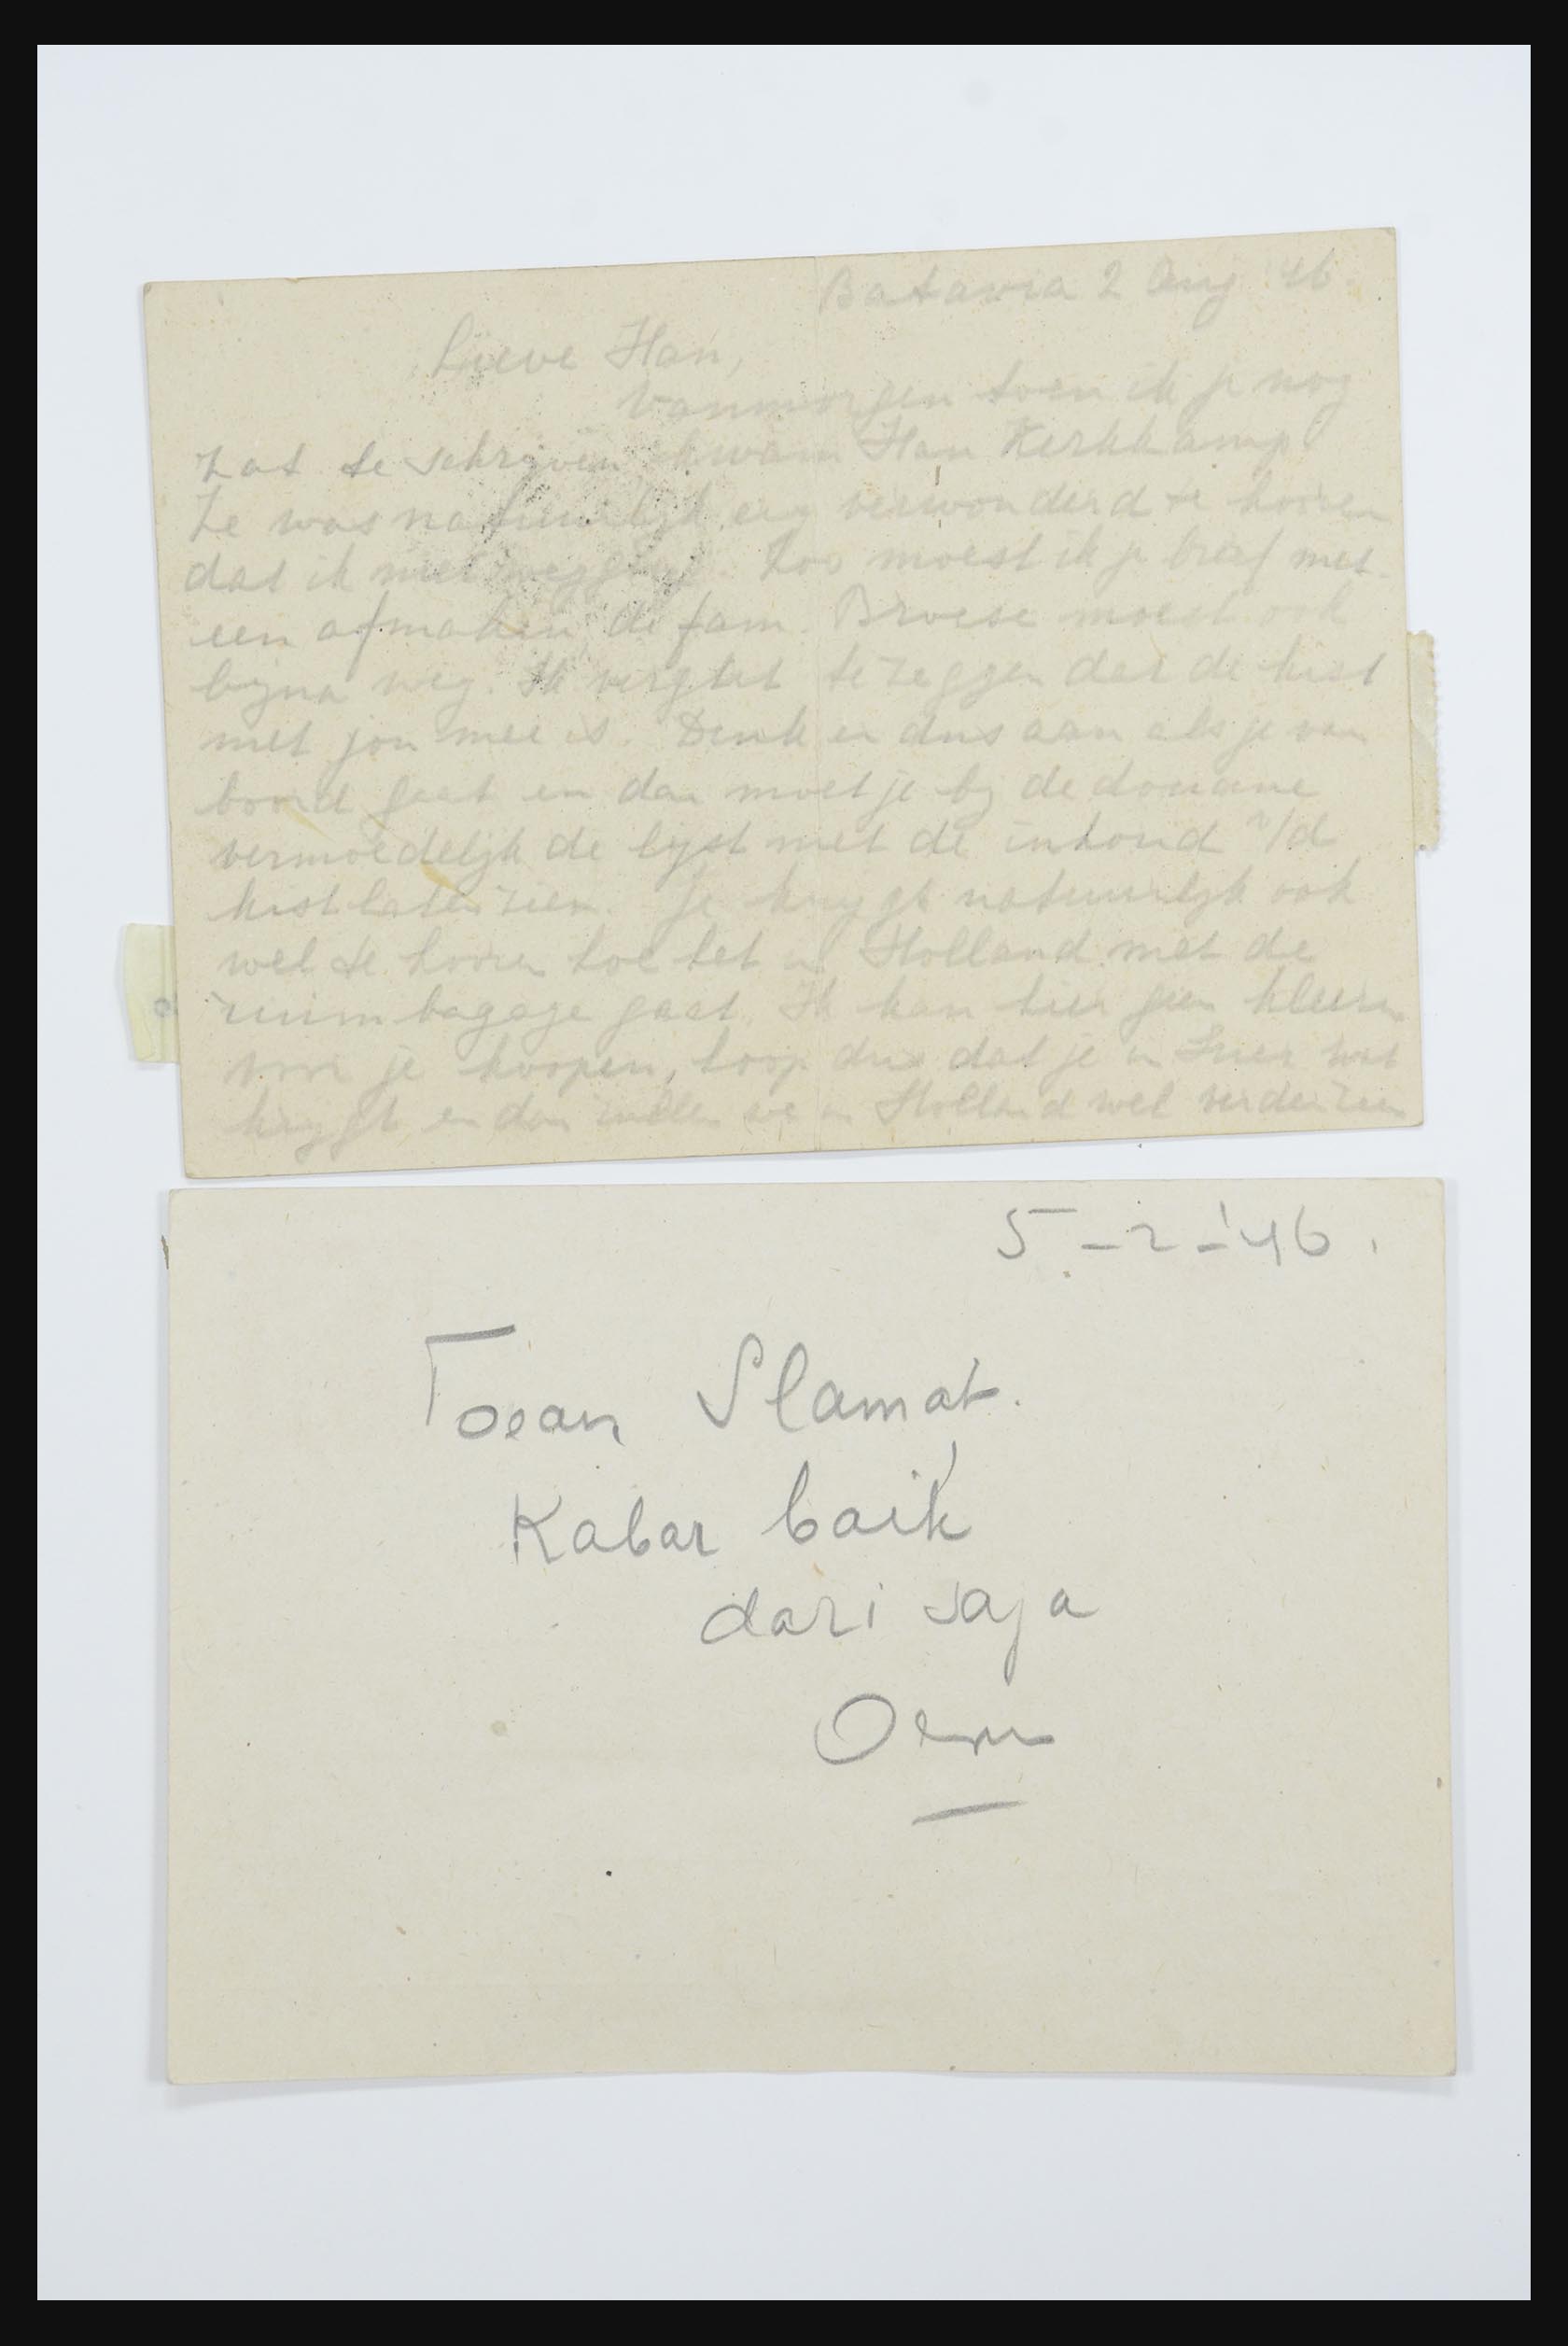 Batavia 2 Aug '46.
Lieve Han,
Vanmorgen toen ik je nog
zat te schrijven kwam Han Kerkkamp
Ze was natuurlijk erg verwonderd te hooren
dat ik niet wegging. Zoo moest ik je brief met-
een afmaken, de fam. Broese moest ook
bijna weg. Ik vergat te zeggen dat de kist
met jou mee is. Denk er dus aan als je van
boord gaat en dan moet je bij de douane
vermoedelijk de lijst met de inhoud v/d
kist laten zien. Je krijgt natuurlijk ook
wel te hooren hoe het in Holland met de
ruimbagage gaat. Ik kan hier geen kleeren
voor je koopen, hoop dus dat je in Suez wat
krijgt en dan zullen we in Holland wel verder zien
5-2-'46.
Toean Slamat.
Kabar baik
dari saja